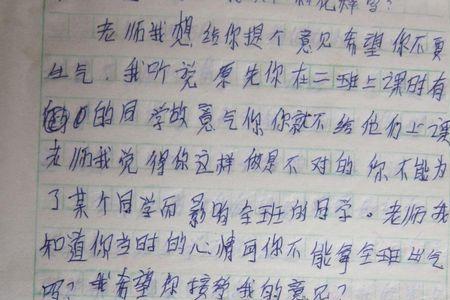 老师我想给你提个意见希望你不要
生气.我听说原先你在二班上课时有
的同学故意气你你就不给他们上课
老师我觉得你这样做是不对的你不能为
了某个同学而影响全班的同学。老师我
知道你当时的心情可你不能拿全班出气
吗?我希望你接受我的意见?